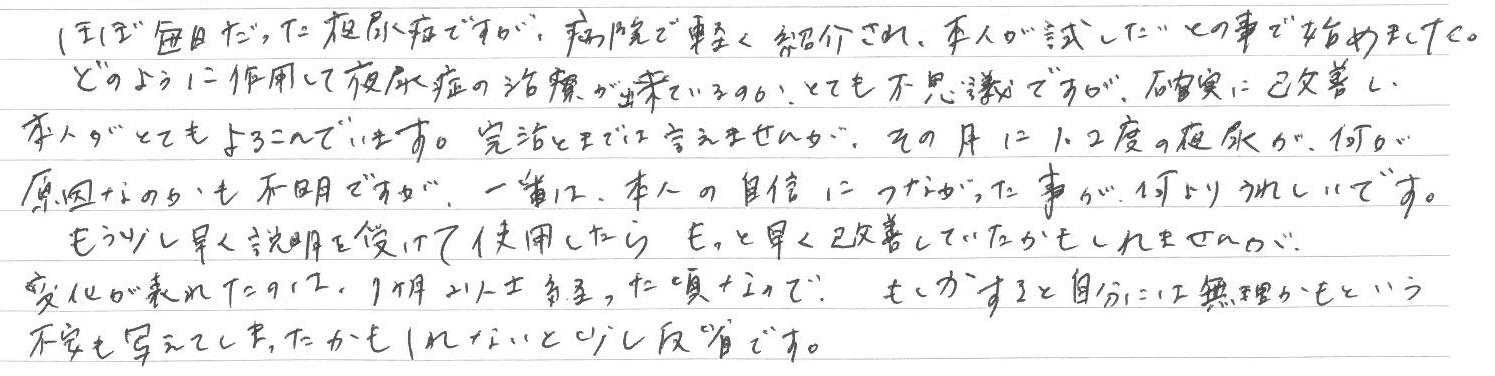 ほぼ毎日だった夜尿症ですが、病院で軽く紹介され、本人が試したいとの事で始めました。
どのように作用して夜尿症の治療が出来ているのか、とても不思議ですが、確実に改善し、
本人がとてもよろこんでいます。完治とまでは言えませんが、その月に1.2度の夜尿が、何が
原因なのかも不明ですが、一番は、本人の自信につながった事が何よりうれしいです。
もう少し早く説明を受けて使用したら もっと早く改善していたかもしれませんが、
変化が表れたのは、1ヶ月以上経った頃なので、もしかすると自分には無理かもという
不安も写えてしまったかもしれないと少し反省です。